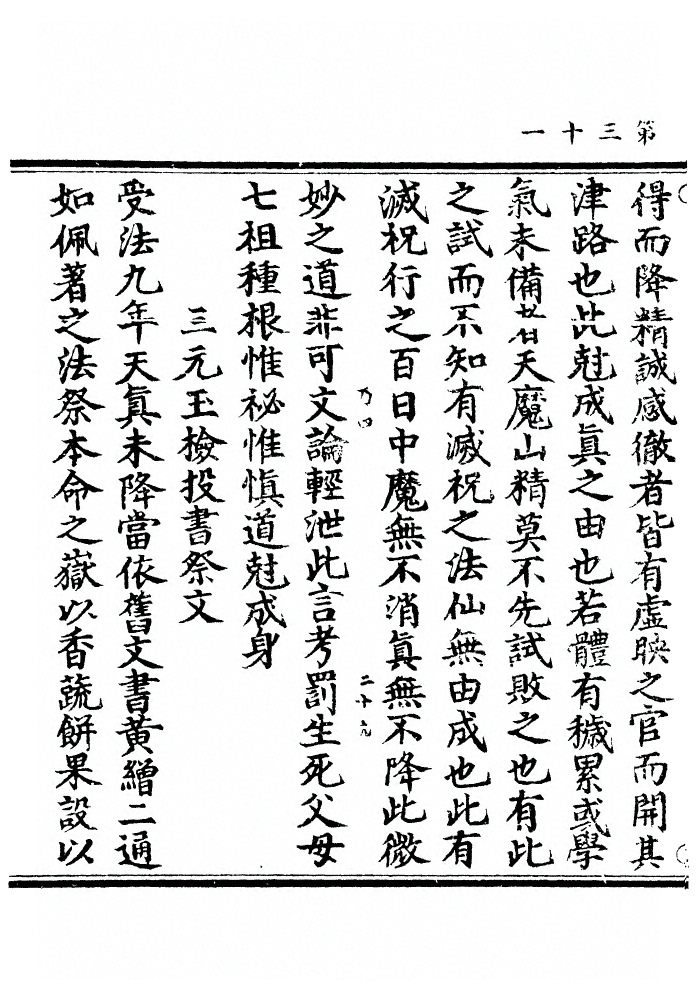 第三十一
得而降精誠感徹者皆有虛映之官而開其
津路也此尅成眞之由也若體有穢累或學
氣未備者天魔山精莫不先試敗之也有此
之試而不知有滅祝之法仙無由成也此有
滅祝行之百日中魔無不消眞無不降此微
乃四
二十六
妙之道非可文論輕泄此言考罰生死父母
七祖種根惟祕惟愼道尅成身
三元玉檢投書祭文
受法九年天眞未降當依舊文書黃繒二通
如佩著之法祭本命之嶽以香蔬餅果設以